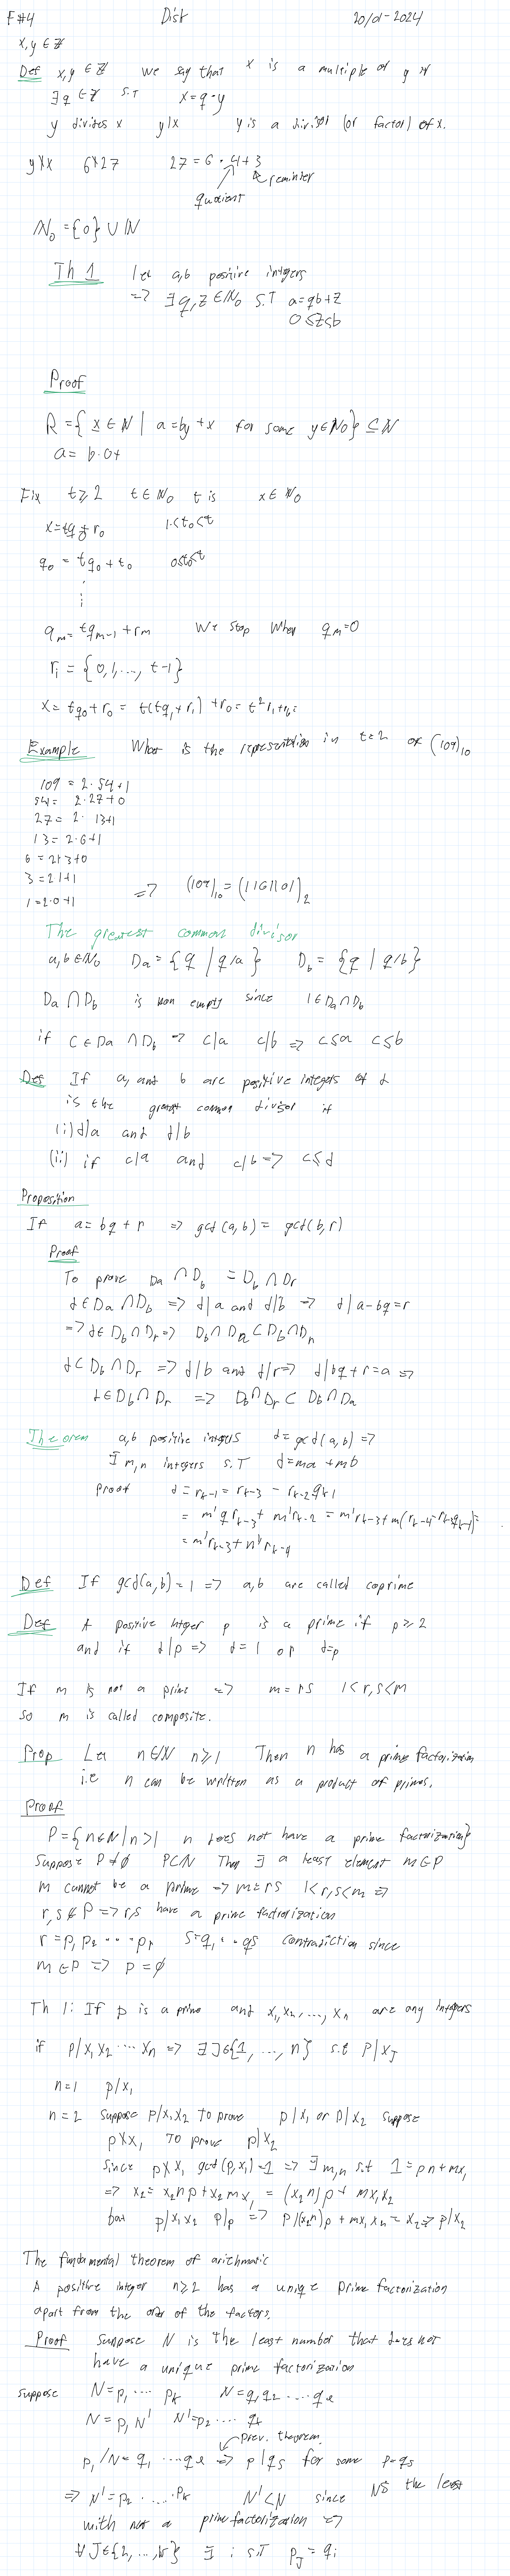 F#4 Disk 20/01-2024
x,y ∈ Z
Def x,y ∈ Z we say that x is a multiple of y if
∃q ∈ Z s.t x=q·y
y divides x y|x y is a divisor (or factor) of x.
y∤x 6∤27 27=6·4+3
reminder
quotient
N₀={0}∪N
Th 1 let a,b positive integers
=> ∃q,z ∈ N₀ s.T a=qb+z
0≤z≤b
Proof
R={x∈N | a=by+x for some y∈N₀} ⊆ N
a= b·0+
Fix t≥2 t∈N₀ t is x∈N₀
x=tq+r₀
q₀ = tq₀+t₀
⋮
qₘ=tqₘ₋₁+rₘ We stop when qₘ=0
rᵢ={0,1,...,t-1}
x=tq₀+r₀ = t(tq₁+r₁)+r₀=t²r₁+r₀=
Example What is the representation in t=2 of (109)₁₀
109 = 2·54+1
54= 2·27+0
27=2·13+1
13=2·6+1
6=2·3+0
3=2·1+1
1=2·0+1 => (109)₁₀=(1101101)₂
The greatest common divisor
a,b∈N₀ Da={q | q|a} D_b={q | q|b}
Da∩D_b is non empty since 1∈Da∩D_b
if c∈Da∩D_b => c|a c|b => c≤a c≤b
Def If a, and b are positive integers of d
is the greatest common divisor if
(i) d|a and d|b
(ii) if c|a and c|b => c≤d
Proposition
If a=bq+r => gcd(a,b)=gcd(b,r)
Proof
To prove Da∩D_b=D_b∩Dr
d∈Da∩D_b => d|a and d|b => d|a-bq=r
=> d∈D_b∩Dr => D_b∩Da⊂D_b∩Dr
d⊂D_b∩Dr => d|b and d|r => d|bq+r=a =>
d∈D_b∩Dr => D_b∩Dr⊂D_b∩Da
Theorem a,b positive integers d=gcd(a,b) =>
∃m,n integers s.T d=ma+mb
Proof d=rₖ₋₁=rₖ₋₃-rₖ₋₂qₖ₋₁
= m'qrₖ₋₃+m'rₖ₋₂=m'rₖ₋₃+m(rₖ₋₄-rₖ₋₃qₖ₋₁)=
=m'rₖ₋₃+n'rₖ₋₄
Def If gcd(a,b)=1 => a,b are called coprime
Def A positive integer p is a prime if p≥2
and if d|p => d=1 or d=p
If m is not a prime => m=rs 1<r,s<m
so m is called composite.
Prop Let n∈N n≥1 Then n has a prime factorization
i.e n can be written as a product of primes.
Proof
P={n∈N|n>1 n does not have a prime factorization}
Suppose P≠∅ P⊂N Then ∃ a least element m∈P
m cannot be a prime => m=rs 1<r,s<m =>
r,s∉P => r,s have a prime factorization
r=p₁p₂...pr s=q₁...qs contradiction since
m∈P => P=∅
Th 1: If p is a prime and x₁,x₂,...,xn are any integers
if p|x₁x₂...xn => ∃J∈{1,...,n} s.t p|xJ
n=1 p|x₁
n=2 suppose p|x₁x₂ To prove p|x₁ or p|x₂ suppose
p∤x₁ To prove p|x₂
since p∤x₁ gcd(p,x₁)=1 => ∃m,n s.t 1=pn+mx₁
=> x₂=x₂np+x₂mx₁=(x₂n)p+mx₁x₂
but p|x₁x₂ p|p => p|(x₂n)p+mx₁x₂=x₂=>p|x₂
The fundamental theorem of arithmatic
A positive integer n≥2 has a unique prime factorization
apart from the order of the factors.
Proof Suppose N is the least number that does not
have a unique prime factorization
suppose N=p₁....pk N=q₁q₂....qe
N=p₁N' N'=p₂....qk
prev. theorem
p₁/N=q₁...qe => p|qs for some p=qs
=> N'=p₂....pk N'<N since NS the least
with not a prime factorization =>
∀J∈{2,..,k} ∃ i s.T pJ=qi